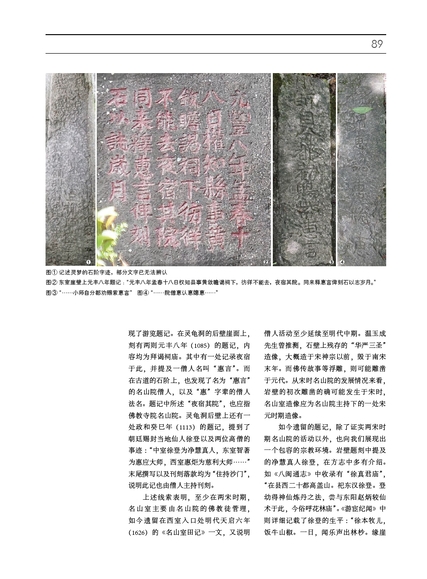 89
元豐八年孟春十
八日權知縣事黃
敦瞻謁祠下彷徉
不能去夜宿其院
同来釋惠言俾刻
石以誌歲月
①
②
③
④
图①记述灵梦的石阶字迹，部分文字已无法辨认
图②东室崖壁上元丰八年题记："元丰八年孟春十八日权知县事黄敦瞻谒祠下。仿徉不能去，夜宿其院。同来释惠言俾刻石以志岁月。"
图③"……小师自分都劝赐家惠言" 图④"……院僧惠认惠璉惠……"
现了游览题记。在灵龟洞的后壁崖面上，
刻有两则元丰八年（1085）的题记，内
容均为拜谒祠庙。其中有一处记录夜宿
于此，并提及一僧人名叫"惠言"。而
在古道的石阶上，也发现了名为"惠言"
的名山院僧人，以及"惠"字辈的僧人
法名。题记中所述"夜宿其院"，也应指
佛教寺院名山院。灵龟洞后壁上还有一
处政和癸巳年（1113）的题记，提到了
朝廷赐封当地仙人徐登以及两位高僧的
事迹："中室徐登为净慧真人，东室智著
为惠应大师，西室惠炬为慈利大师……"
末尾撰写以及刊刻落款均为"住持沙门"，
说明此记也由僧人主持刊刻。
上述线索表明，至少在两宋时期，
名山室主要由名山院的佛教徒管理，
如今遗留在西室入口处明代天启六年
（1626）的《名山室田记》一文，又说明
僧人活动至少延续至明代中期。温玉成
先生曾推测，石壁上残存的"华严三圣"
造像，大概造于宋神宗以前，毁于南宋
末年。而佛传故事等浮雕，则可能雕凿
于元代。从宋时名山院的发展情况来看，
岩壁的初次雕凿的确可能发生于宋时，
名山室造像应为名山院主持下的一处宋
元时期造像。
如今遗留的题记，除了证实两宋时
期名山院的活动以外，也向我们展现出
一个包容的宗教环境。岩壁题刻中提及
的净慧真人徐登，在方志中多有介绍。
如《八闽通志》中收录有"徐真君庙"，
"在县西二十都高盖山。祀东汉徐登。登
幼得神仙炼丹之法，尝与东阳赵炳较仙
术于此，今俗呼花林庙"。《游宦纪闻》中
则详细记载了徐登的生平："徐本牧儿，
饭牛山椒。一日，闻乐声出林杪。缘崖